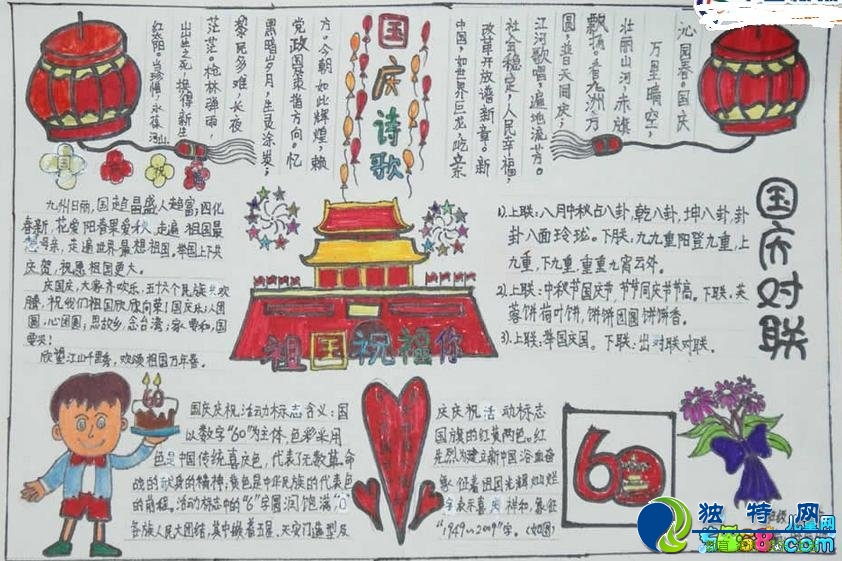 国庆诗歌
沁园春。国庆
万里晴空，
壮丽山河，赤旗
飘扬。看九洲方
圆，普天同庆，
江河歌唱，遍地流芳。
社会稳定，人民幸福，
改革开放谱新章。新
中国，如世界巨龙，屹立东
方。今朝如此辉煌，赖
党政国策指方向。忆
黑暗岁月，生灵涂炭，
黎民多难，长夜
茫茫。枪林弹雨，
出生入死，换得新生
红太阳。当珍惜，永葆河山
国
祝
九州日丽，国超昌盛人超富；四化
春新，花爱阳春果爱秋，走遍祖国最
想母亲，走遍世界最想祖国，举国上下共
庆贺，祝愿祖国更大。
庆国庆，大家齐欢乐，五十六个民族共欢
腾，祝我们祖国欣欣向荣！国庆乐；人团
圆，心团圆；思故乡，念台湾；家要和，国
要兴！
欣望江山千里秀，欢颂祖国万年春。
祖国祝福你
国庆对联
1)。上联：八月中秋占八卦，乾八卦，坤八卦，卦
卦八面玲珑。下联：九九重阳登九重，上
九重，下九重，重重九霄云外。
2)。上联：中秋节国庆节，节节同庆节节高。下联：芙
蓉饼荷叶饼，饼饼团圆饼饼香。
3)。上联：举国庆国。下联：出对联对联。
60
国庆庆祝活动标志含义：国
以数字“60”为主体，色彩采用
色是中国传统喜庆色，代表了无数革命
战的献身的精神，黄色是中华民族的代表色
的前程。活动标志中的“6”字圆润饱满
各族人民大团结，其中镶着五星、天安门造型及
庆庆祝活动标志
国旗的红黄两色。红
先烈为建立新中国浴血奋
象征着祖国光辉灿烂
字表示喜庆祥和，象征
“1949～2009”字。（如图）
60
独特网
儿童网
.com